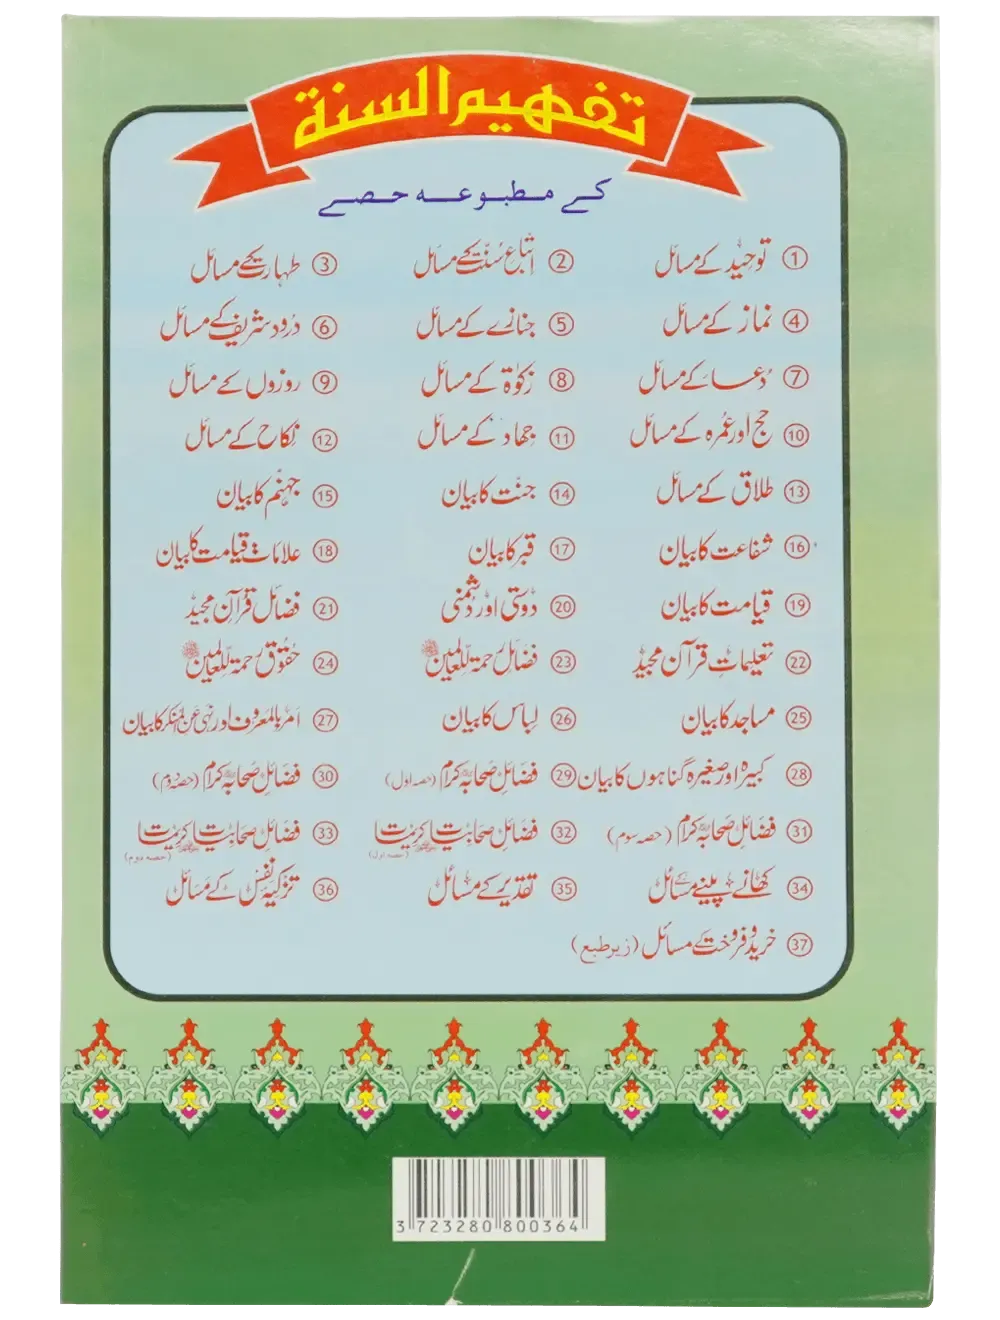 تفہیم السنة
کے مطبوعہ حصے
① توحید کے مسائل ② اتباع سنت کے مسائل ③ طہارت کے مسائل
④ نماز کے مسائل ⑤ جنازے کے مسائل ⑥ درود شریف کے مسائل
⑦ دُعا کے مسائل ⑧ زکوٰة کے مسائل ⑨ روزوں کے مسائل
⑩ حج اور عمرہ کے مسائل ⑪ جہاد کے مسائل ⑫ نکاح کے مسائل
⑬ طلاق کے مسائل ⑭ جنت کا بیان ⑮ جہنم کا بیان
⑯ شفاعت کا بیان ⑰ قبر کا بیان ⑱ علامات قیامت کا بیان
⑲ قیامت کا بیان ⑳ دوستی اور دشمنی ㉑ فضائل قرآن مجید
㉒ تعلیمات قرآن مجید ㉓ فضائل رحمة للعالمین ﷺ ㉔ حقوق رحمة للعالمین ﷺ
㉕ مساجد کا بیان ㉖ لباس کا بیان ㉗ امر بالمعروف اور نہی عن المنکر کا بیان
㉘ کبیرہ اور صغیرہ گناہوں کا بیان ㉙ فضائل صحابہ کرام (حصہ اول) ㉚ فضائل صحابہ کرام (حصہ دوم)
㉛ فضائل صحابہ کرام (حصہ سوم) ㉜ فضائل صحابیات (حصہ اول) ㉝ فضائل صحابیات (حصہ دوم)
㉞ کھانے پینے کے مسائل ㉟ تقدیر کے مسائل ㊱ تزکیہ نفس کے مسائل
㊲ خرید و فروخت کے مسائل (زیر طبع)
3 723280 800364